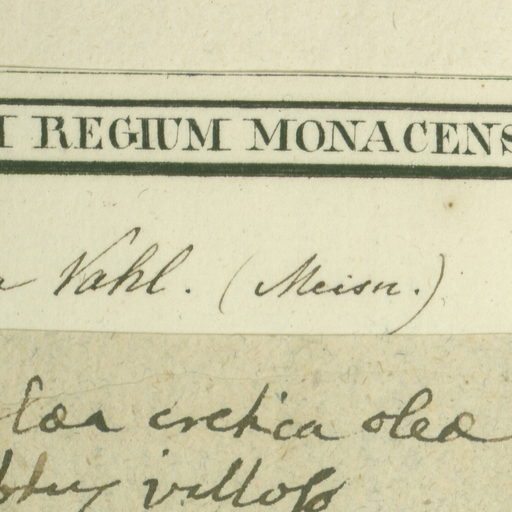 REGIUM MONACENS
Vahl. (Meisn.)
cretica olea
villoso